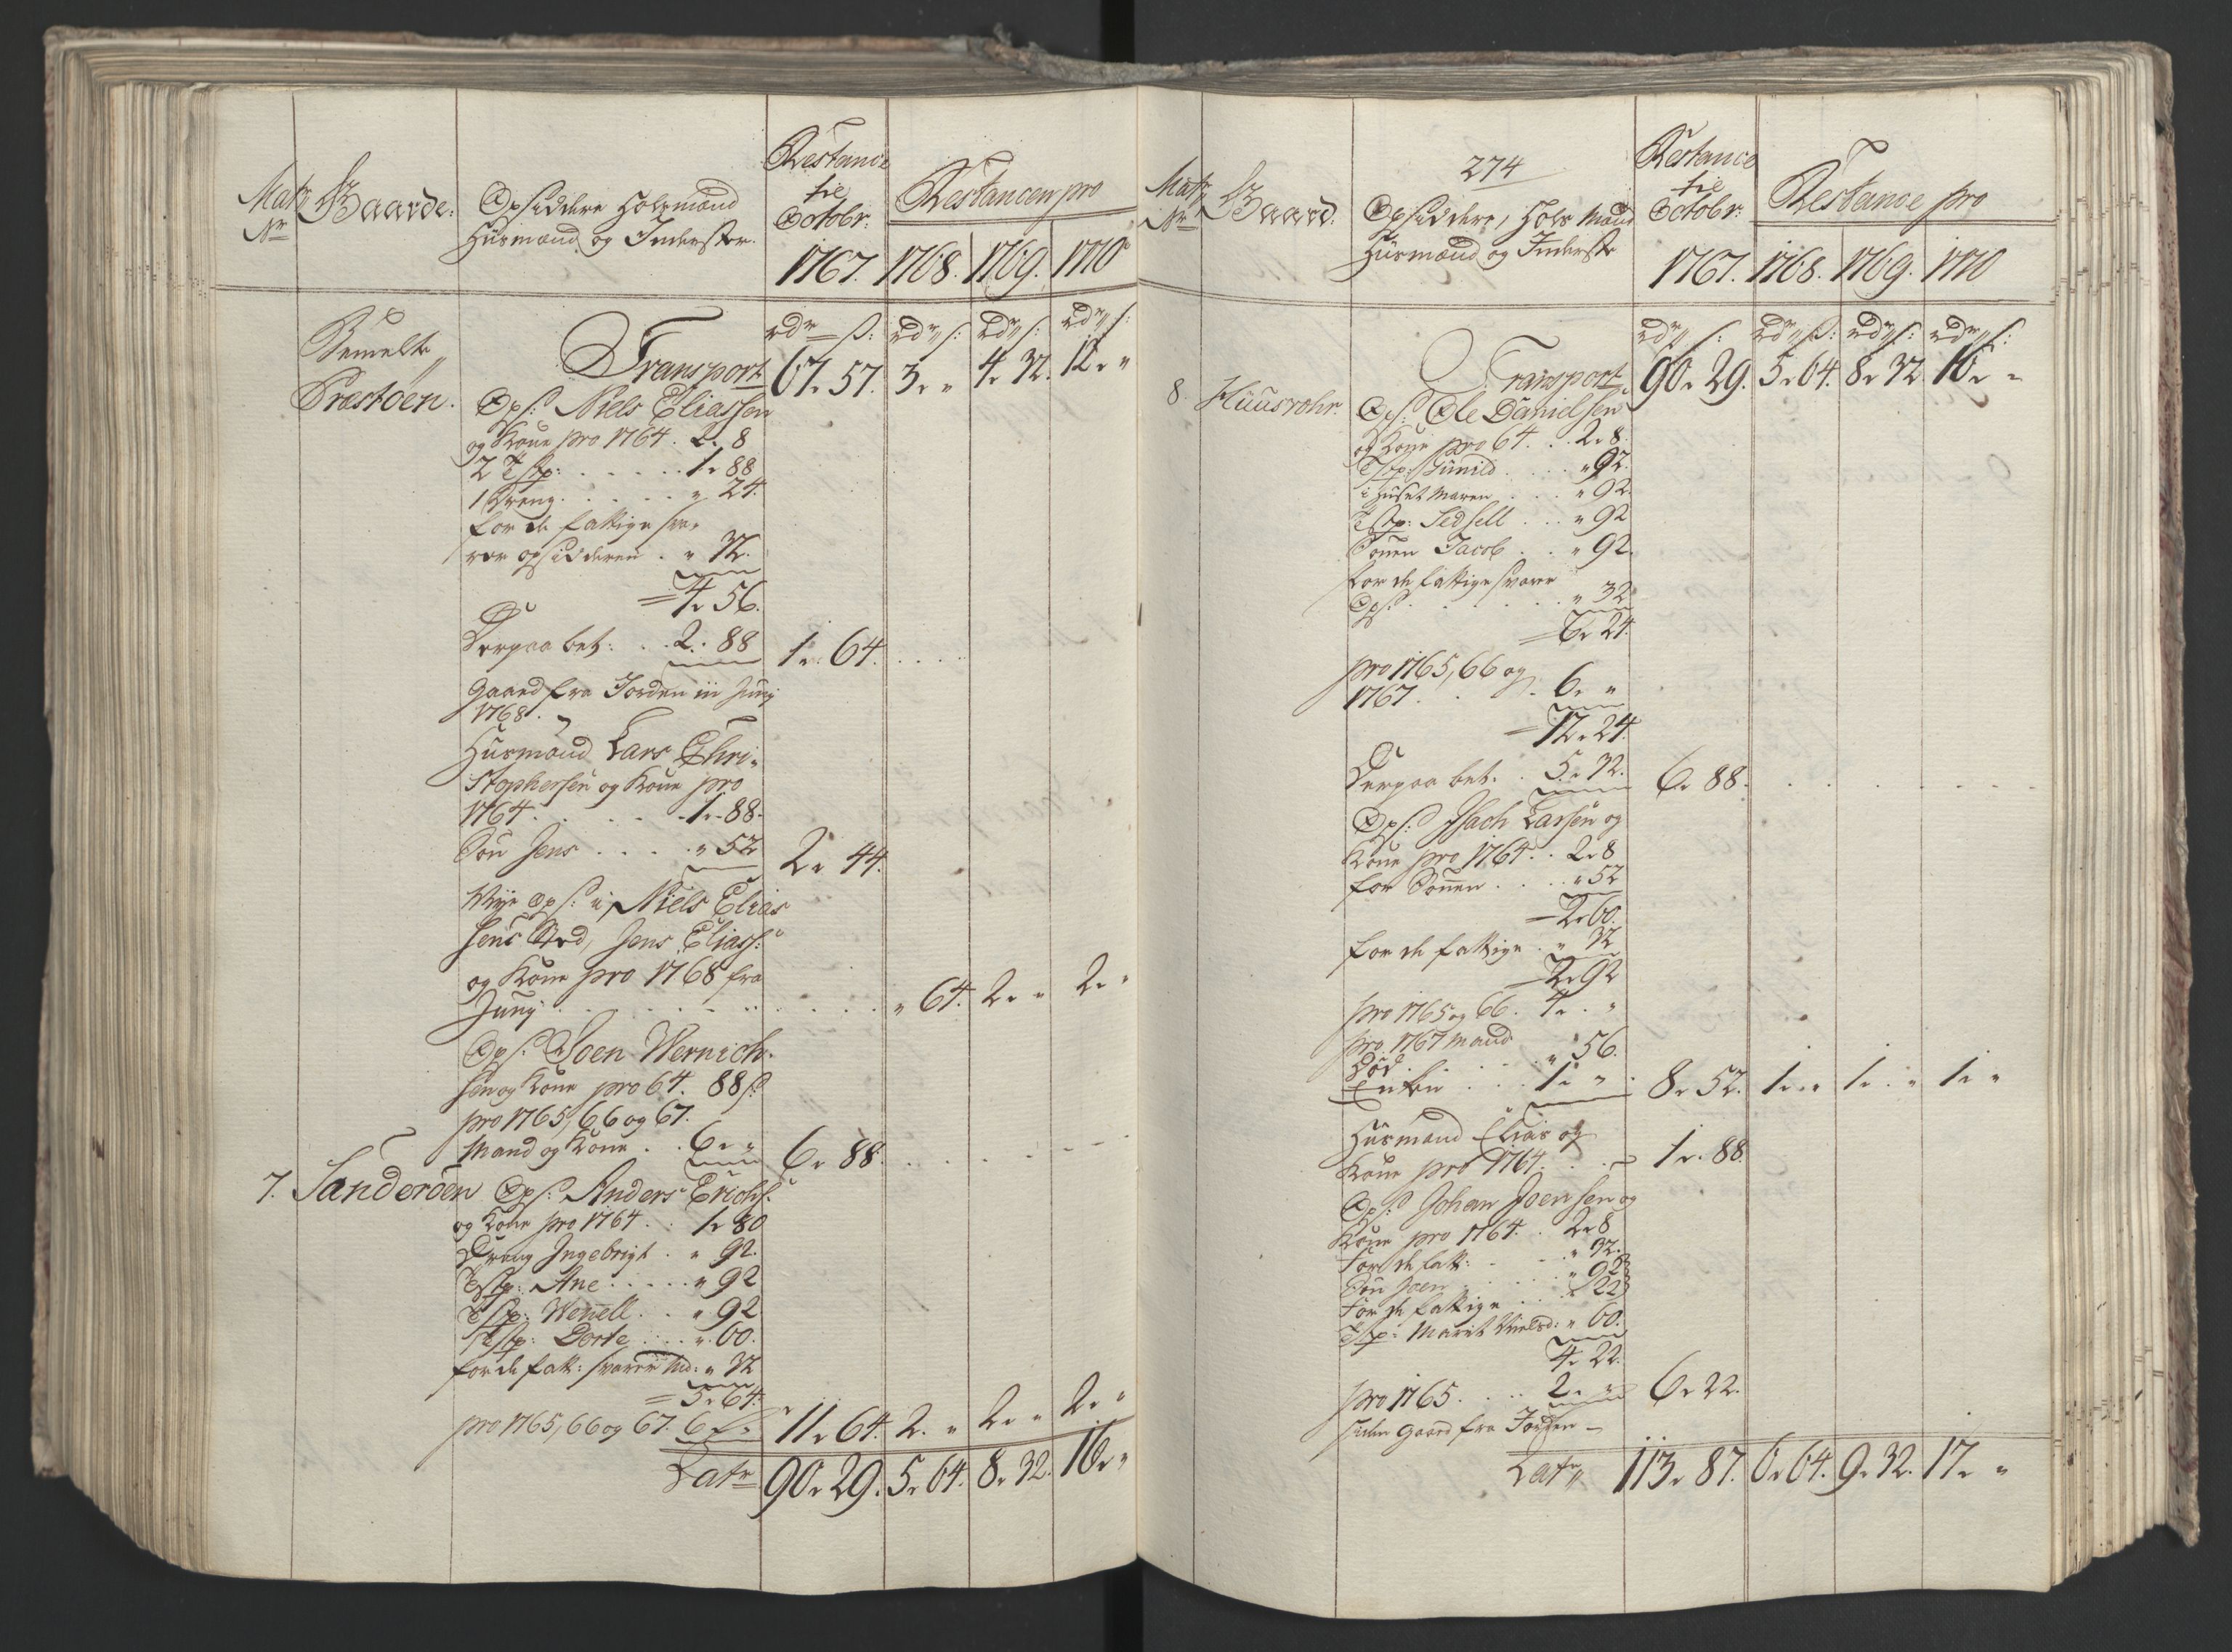 Matr Nr
Gaarde:
Opsiddere Holsmænd
Huusmænd og Inderster.
Restance
til
Octobr:
1767.
Restancen pro
1768. 1769. 1770
rdr ß: rdr ß: rdr ß: rdr ß:
Bemelte
Transport 67. 57. 3. " 4. 32. 12. "
Præstøen. Ops: Niels Eliassen
og Kone pro 1764. 2. 8
2 Tstp: . . . . 1. 88
1 Dreng . . . . " 24.
for de fattige sva-
rer opsidderen . " 32.
= 4. 56.
Derpaa bet: . . 2. 88 1. 64.
Gaaed fra Jorden in Juny
1768.
Huusmand Lars Chri-
stophersen og Kone pro
1764. . . . . 1. 88.
Søn Jens . . . " 52 2. 44.
Nye Ops: i Niels Elias
sens Sted, Jens Eliass:
og Kone pro 1768 fra
Juny . . . . " 64. 2. " 2. "
Ops: Joen Wernich-
sen og Kone pro 64. 88 ß
pro 1765, 66 og 67.
Mand og Kone . . 6. " 6. 88.
7. Sanderøen Ops: Anders Erichs:
og Kone pro 1764. . 1. 80
Dreng Ingebrigt . " 92.
Tstp: Ane . . . . " 92
Tstp: Wenell . . " 92
Tstp: Dorte . . . " 60.
for de fatt: svarer Md: " 32
= 5. 64.
pro 1765, 66 og 67. 6. " 11. 64. 2. " 2. " 2. "
Latr 90. 29. 5. 64. 8. 32. 16. "
274
Matr Nr
Gaard.
Opsiddere, Hols Mænd
Huusmænd og Inderste
Restance
til
Octobr:
1767.
Restance pro
1768. 1769. 1770
rdr ß: rdr ß: rdr ß: rdr ß:
Transport 90. 29. 5. 64. 8. 32. 16. "
8. Huusrohr. Ops: Ole Danielsen
og Kone pro 64. . . 2. 8.
Tstp: Gunild . . . " 92.
i Huset Maren . . " 92.
Tstp: Sidsell . . . " 92
Sønen Jacob . . " 92.
for de fattige svarer
Ops: . . . . " 32
= 6. 24.
pro 1765, 66 og
1767 . . . 6. "
= 12. 24.
Derpaa bet. . 5. 32. 6. 88.
Ops: Isach Larsen og
Kone pro 1764. . 2. 8
for Sønnen . . . " 52
= 2. 60.
for de fattige . " 32
= 2. 92
pro 1765 og 66. 4. "
pro 1767 Mand
død . . . . " 56.
Enken . . . 1. " 8. 52. 1. " 1. " 1. "
Huusmand Elias og
Kone pro 1764. . . 1. 88.
Ops: Johan Joensen og
Kone pro 1764. . 2. 8
For de fatt: . . . " 32.
Søn Joen . . . " 92
For de fattige . . . " 22
Tstp: Marit Nielsd: " 60.
4. 22.
pro 1765. . . 2. " 6. 22.
siden gaaed fra Jorden –
Latr 113. 87. 6. 64. 9. 32. 17. "